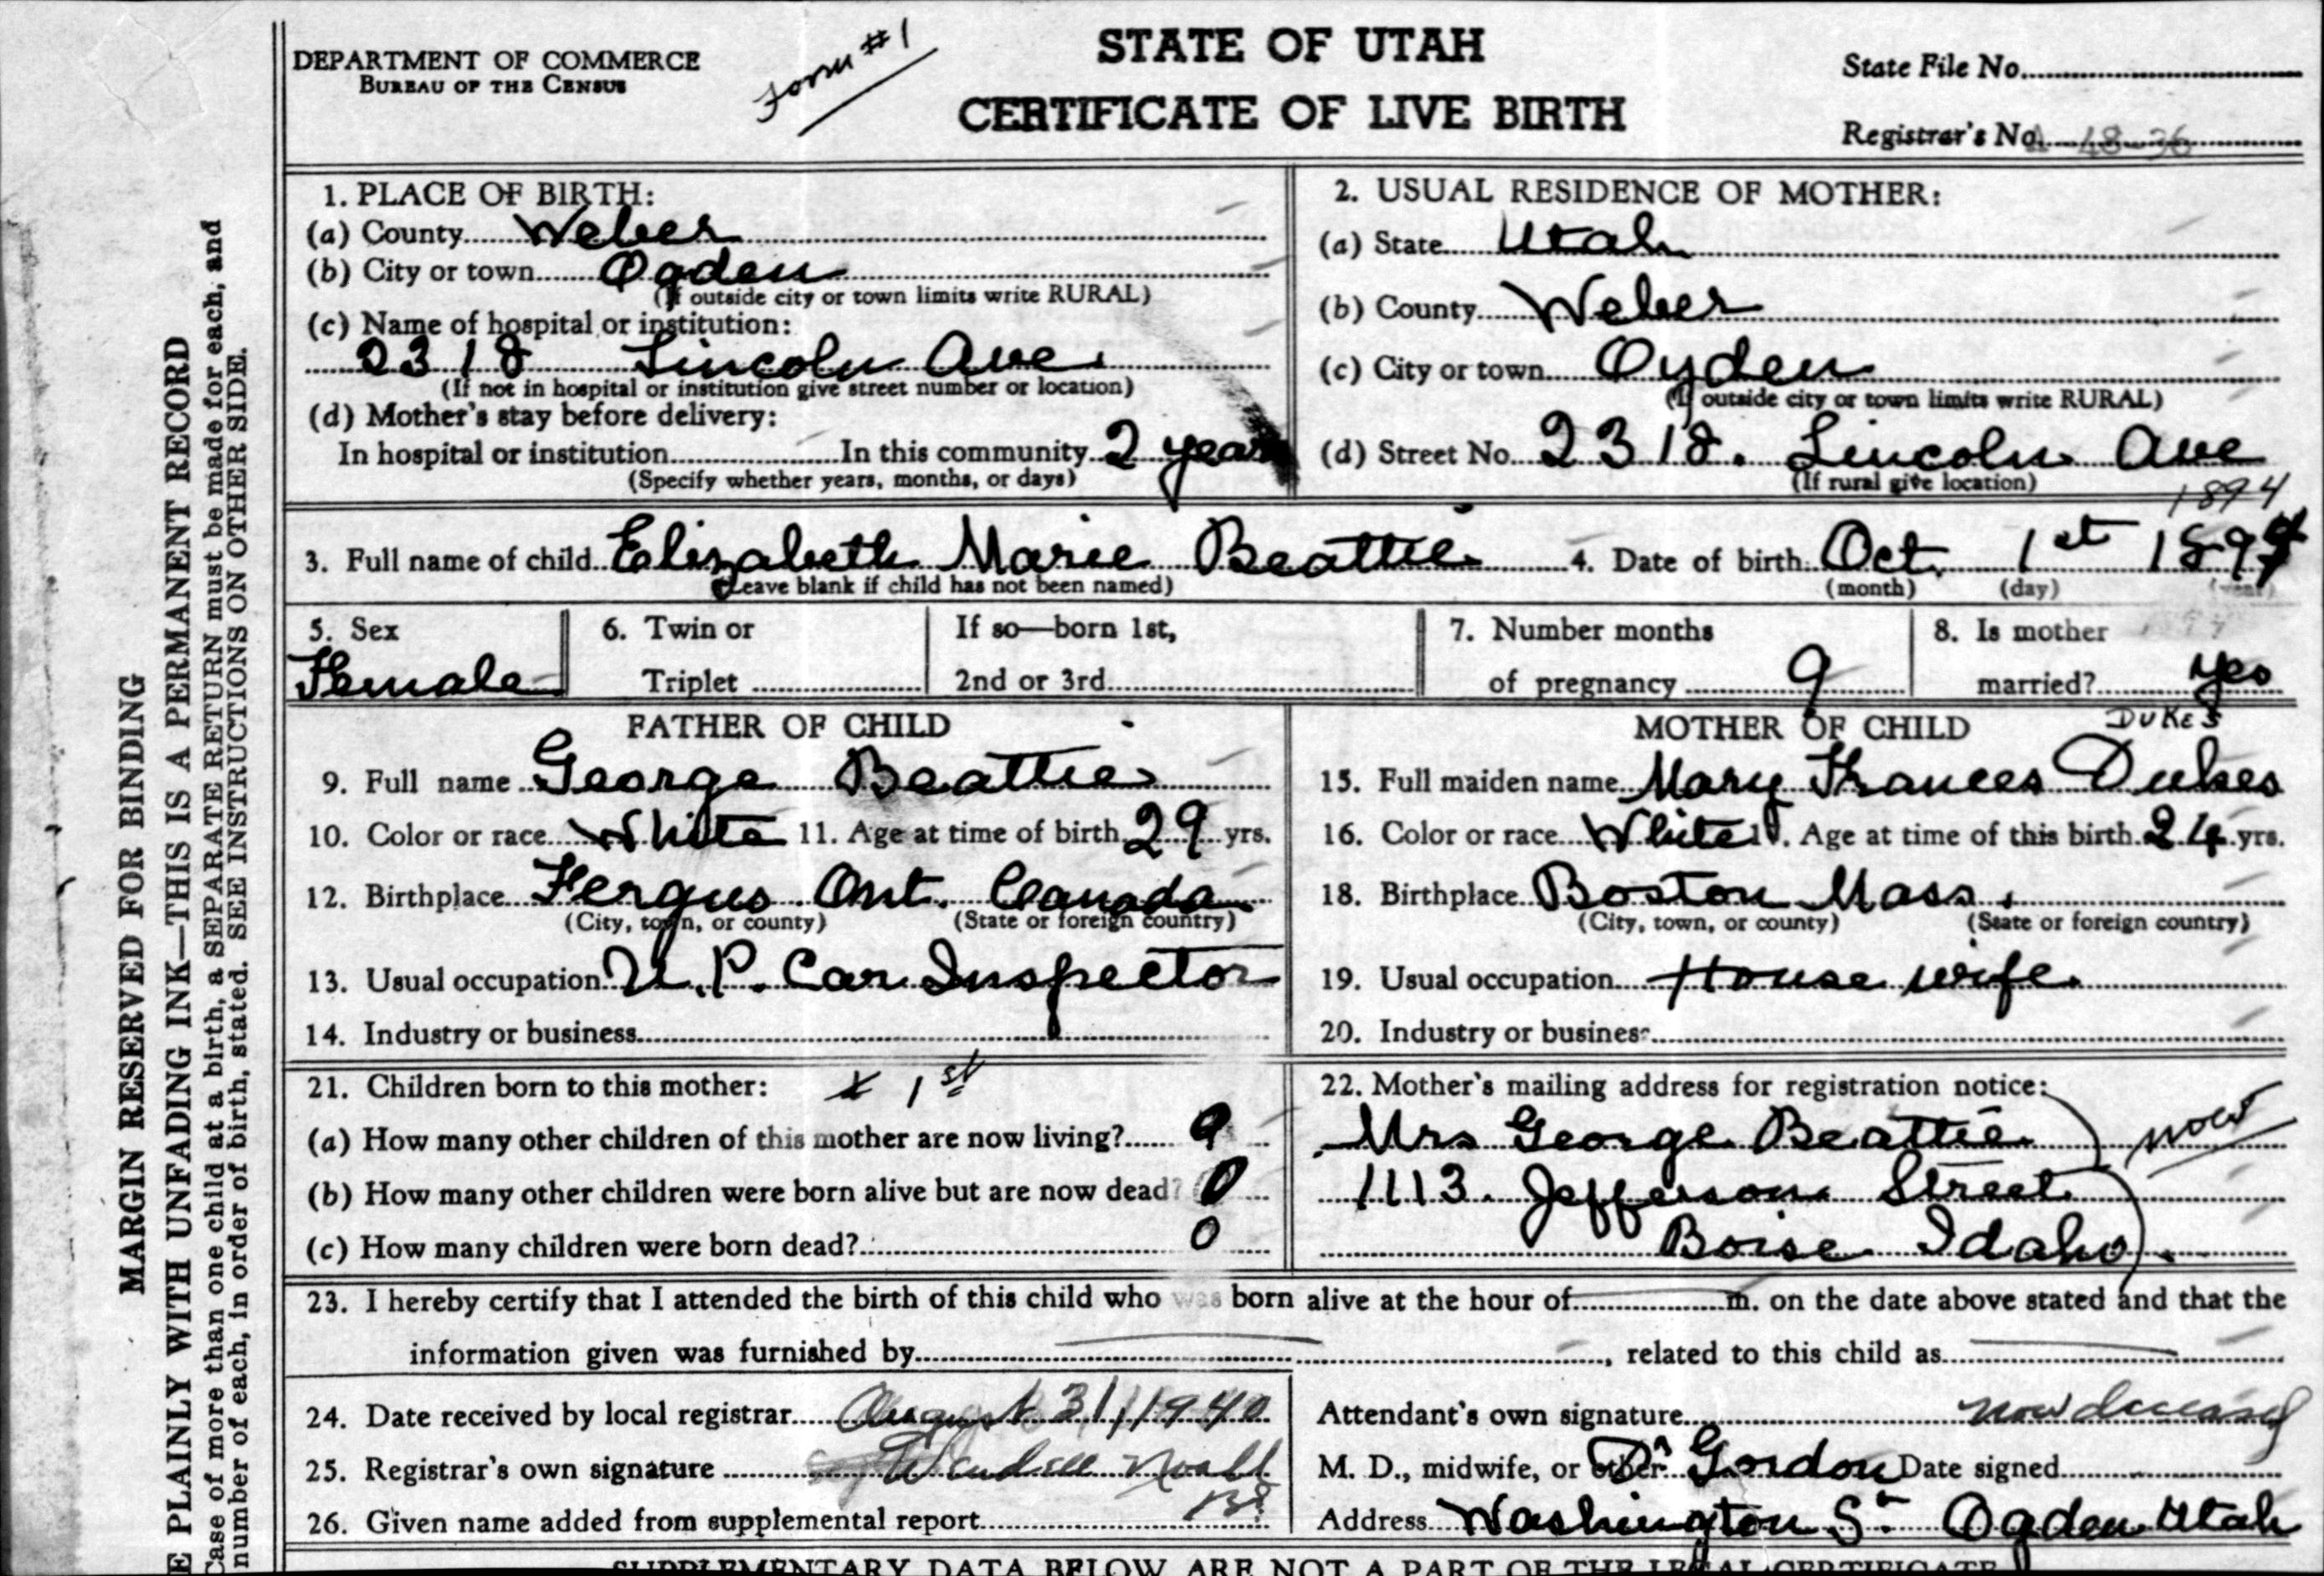 DEPARTMENT OF COMMERCE
BUREAU OF THE CENSUS
Form #1
STATE OF UTAH
CERTIFICATE OF LIVE BIRTH
State File No.
Registrar's No. 48-36
MARGIN RESERVED FOR BINDING
E PLAINLY WITH UNFADING INK—THIS IS A PERMANENT RECORD
Case of more than one child at a birth, a SEPARATE RETURN must be made for each, and
number of each, in order of birth, stated. SEE INSTRUCTIONS ON OTHER SIDE.
1. PLACE OF BIRTH:
(a) County Weber
(b) City or town Ogden
(If outside city or town limits write RURAL)
(c) Name of hospital or institution:
2318 Lincoln Ave.
(If not in hospital or institution give street number or location)
(d) Mother's stay before delivery:
In hospital or institution In this community 2 years
(Specify whether years, months, or days)
2. USUAL RESIDENCE OF MOTHER:
(a) State Utah
(b) County Weber
(c) City or town Ogden
(If outside city or town limits write RURAL)
(d) Street No. 2318. Lincoln Ave
(If rural give location)
1894
3. Full name of child Elizabeth Marie Beattie 4. Date of birth Oct. 1st 1894
(Leave blank if child has not been named) (month) (day) (year)
5. Sex Female
6. Twin or
Triplet
If so—born 1st,
2nd or 3rd
7. Number months
of pregnancy 9
8. Is mother
married? yes
FATHER OF CHILD
9. Full name George Beattie
10. Color or race White 11. Age at time of birth 29 yrs.
12. Birthplace Fergus Ont. Canada
(City, town, or county) (State or foreign country)
13. Usual occupation U.P. Car Inspector
14. Industry or business
MOTHER OF CHILD
DUKES
15. Full maiden name Mary Frances Dukes
16. Color or race White 17. Age at time of this birth 24 yrs.
18. Birthplace Boston Mass.
(City, town, or county) (State or foreign country)
19. Usual occupation House wife
20. Industry or business
21. Children born to this mother: 1st
(a) How many other children of this mother are now living?
(b) How many other children were born alive but are now dead? 0
(c) How many children were born dead? 0
22. Mother's mailing address for registration notice:
Mrs George Beattie now
1113. Jefferson Street
Boise Idaho.
23. I hereby certify that I attended the birth of this child who was born alive at the hour of m. on the date above stated and that the
information given was furnished by , related to this child as
24. Date received by local registrar August 31, 1940
25. Registrar's own signature
26. Given name added from supplemental report
Attendant's own signature now deceased
M. D., midwife, or other Dr Gordon Date signed
Address Washington St. Ogden Utah
SUPPLEMENTARY DATA BELOW ARE NOT A PART OF THE LEGAL CERTIFICATE